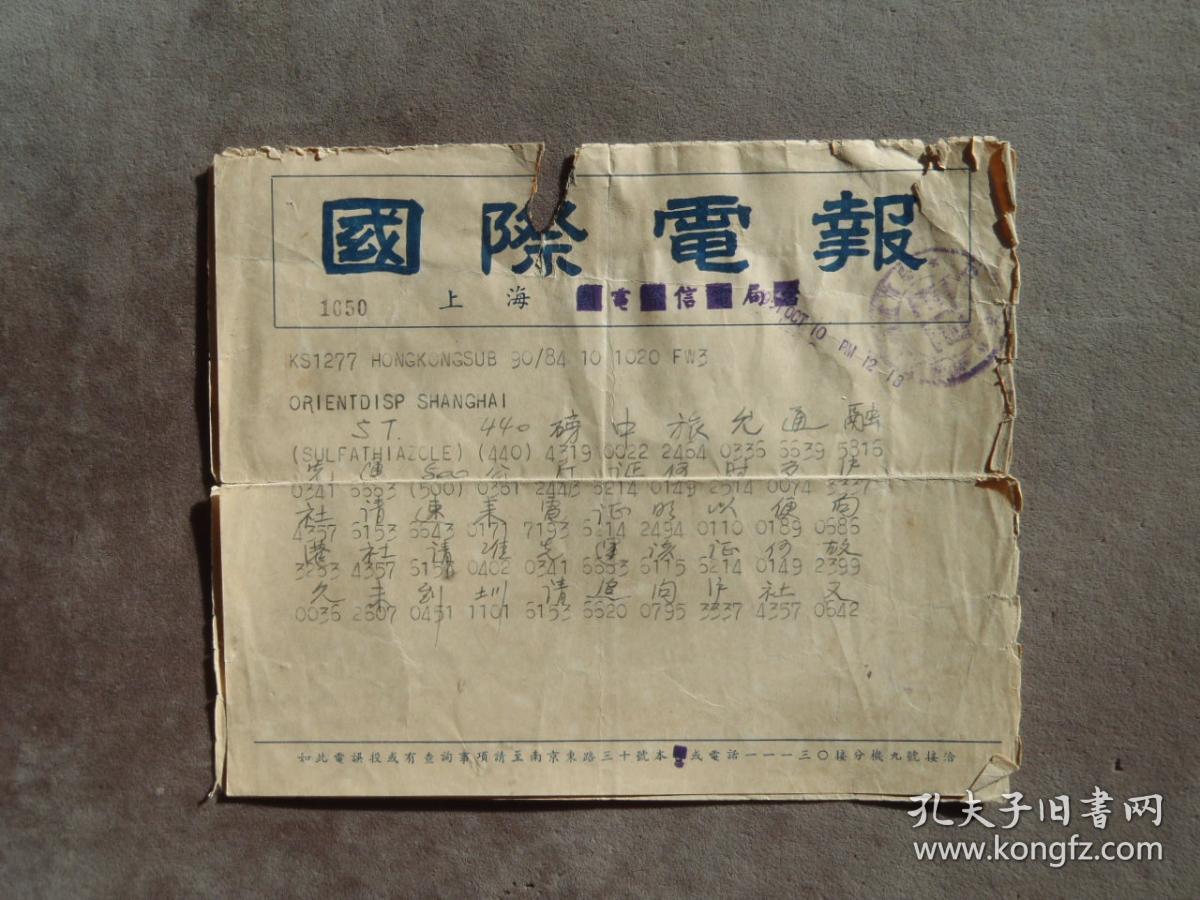 國際電報
1050 上海 電信局
OCT 10 PM 12-18
KS1277 HONGKONGSUB 90/84 10 1020 FW3
ORIENTDISP SHANGHAI
ST. 440 磅 中 旅 允 通 融
(SULFATHIAZOLE) (440) 4319 0022 2464 0336 6639 5816
先 運 500 公 斤 证 何 时 可 沪
0341 6663 (500) 0361 2443 6214 0149 2514 0074 3337
社 请 速 来 電 证 明 以 便 向
4357 6153 6643 0171 7193 6214 2494 0110 0189 0686
港 社 请 准 先 運 该 证 何 故
3263 4357 6153 0402 0341 6663 6115 6214 0149 2399
久 未 到 圳 请 追 问 沪 社 又
0036 2607 0451 1101 6153 6620 0795 3337 4357 0642
如此電誤投或有查詢事項請至南京東路三十號本 或電話一一一三〇接分機九號接洽
孔夫子旧書网
www.kongfz.com